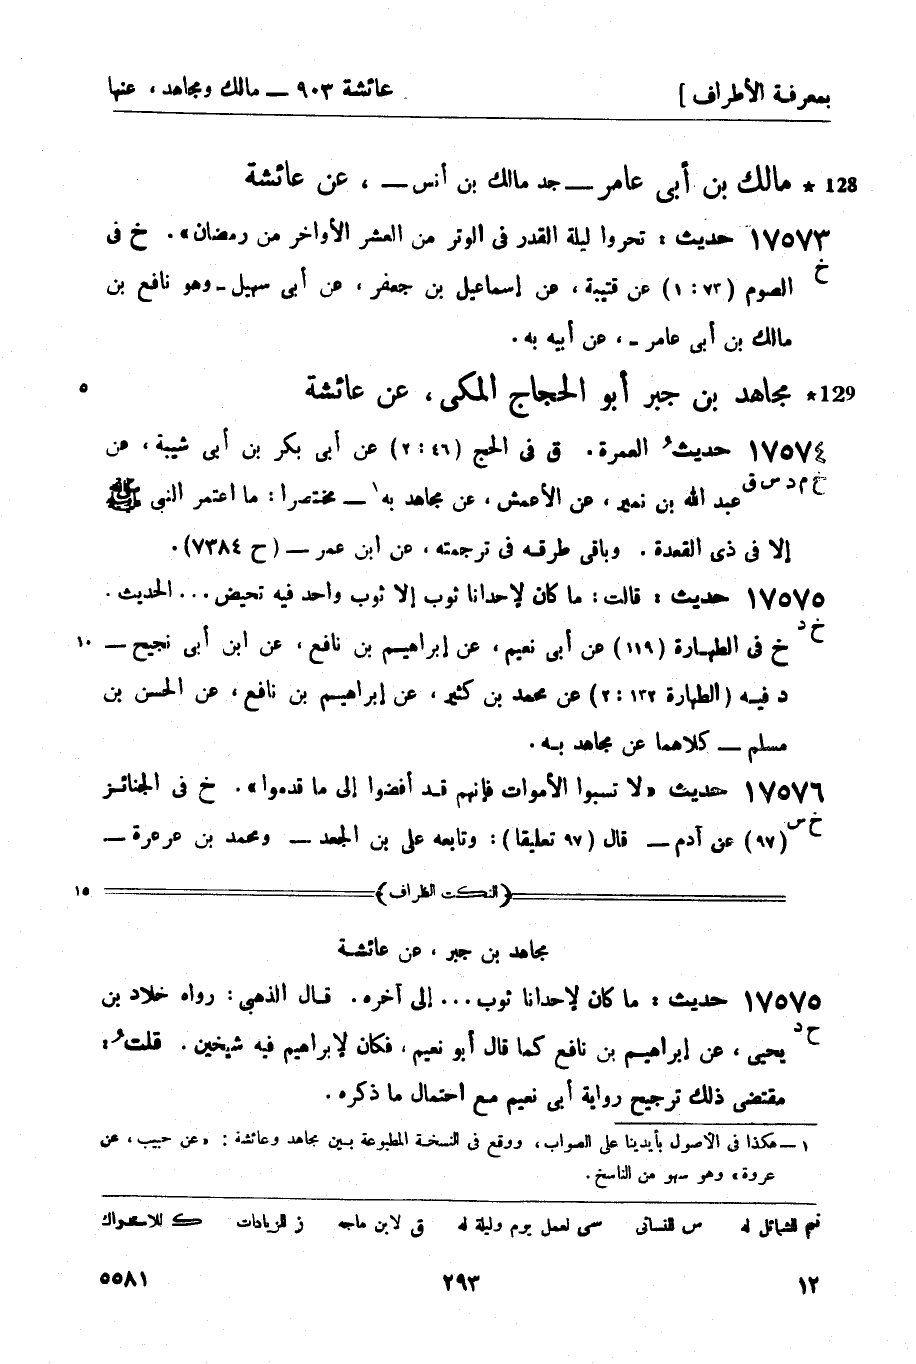 بمعرفة الأطراف ] عائشة ٩٠٣ ــ مالك ومجاهد ، عنها
128 * مالك بن أبى عامر ــ جد مالك بن أنس ــ ، عن عائشة
١٧٥٧٣ حديث : تحروا ليلة القدر فى الوتر من العشر الأواخر من رمضان» . خ فى
خ
الصوم (٧٣ : ١) عن قتيبة ، عن إسماعيل بن جعفر ، عن أبى سهيل ـ وهو نافع بن
مالك بن أبى عامر ـ ، عن أبيه به .
129 * مجاهد بن جبر أبو الحجاج المكى ، عن عائشة ٥
١٧٥٧٤ حديث العمرة . ق فى الحج (٤٦ : ٢) عن أبى بكر بن أبى شيبة ، عن
خ م د س ق
عبد الله بن نمير ، عن الأعمش ، عن مجاهد به ١ ــ مختصرا : ما اعتمر النبى ﷺ
إلا فى ذى القعدة . وباقى طرقه فى ترجمته ، عن ابن عمر ــ (ح ٧٣٨٤) .
١٧٥٧٥ حديث : قالت : ما كان لإحدانا ثوب إلا ثوب واحد فيه تحيض ... الحديث .
خ د
خ فى الطهارة (١١٩) عن أبى نعيم ، عن إبراهيم بن نافع ، عن ابن أبى نجيح ــ ١٠
د فيه (الطهارة ١٣٢ : ٢) عن محمد بن كثير ، عن إبراهيم بن نافع ، عن الحسن بن
مسلم ــ كلاهما عن مجاهد به .
١٧٥٧٦ حديث «لا تسبوا الأموات فإنهم قد أفضوا إلى ما قدموا» . خ فى الجنائز
خ س
(٩٧) عن آدم ــ قال (٩٧ تعليقا) : وتابعه على بن الجعد ــ ومحمد بن عرعرة ــ
(النكت الظراف) ١٥
مجاهد بن جبر ، عن عائشة
١٧٥٧٥ حديث : ما كان لإحدانا ثوب ... إلى آخره . قال الذهبى : رواه خلاد بن
خ د
يحيى ، عن إبراهيم بن نافع كما قال أبو نعيم ، فكان لإبراهيم فيه شيخين . قلت :
مقتضى ذلك ترجيح رواية أبى نعيم مع احتمال ما ذكره .
١ ــ هكذا فى الأصول بأيدينا على الصواب ، ووقع فى النسخة المطبوعة بين مجاهد وعائشة : «عن حبيب ، عن
عروة» وهو سهو من الناسخ .
تم للشمائل له س للنسائى سى لعمل يوم وليلة له ق لابن ماجه ز للزيادات ك للاستدراك
١٢ ٢٩٣ ٥٥٨١